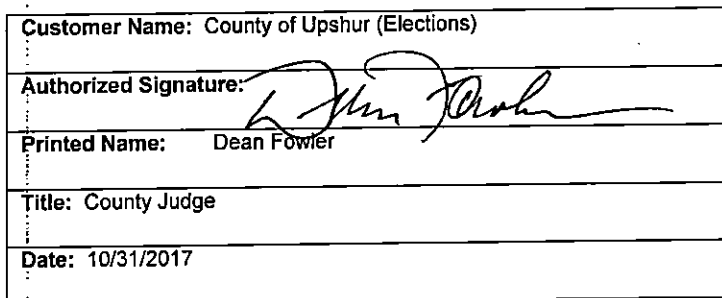 Customer Name: County of Upshur (Elections)
Authorized Signature:
Printed Name: Dean Fowler
Title: County Judge
Date: 10/31/2017